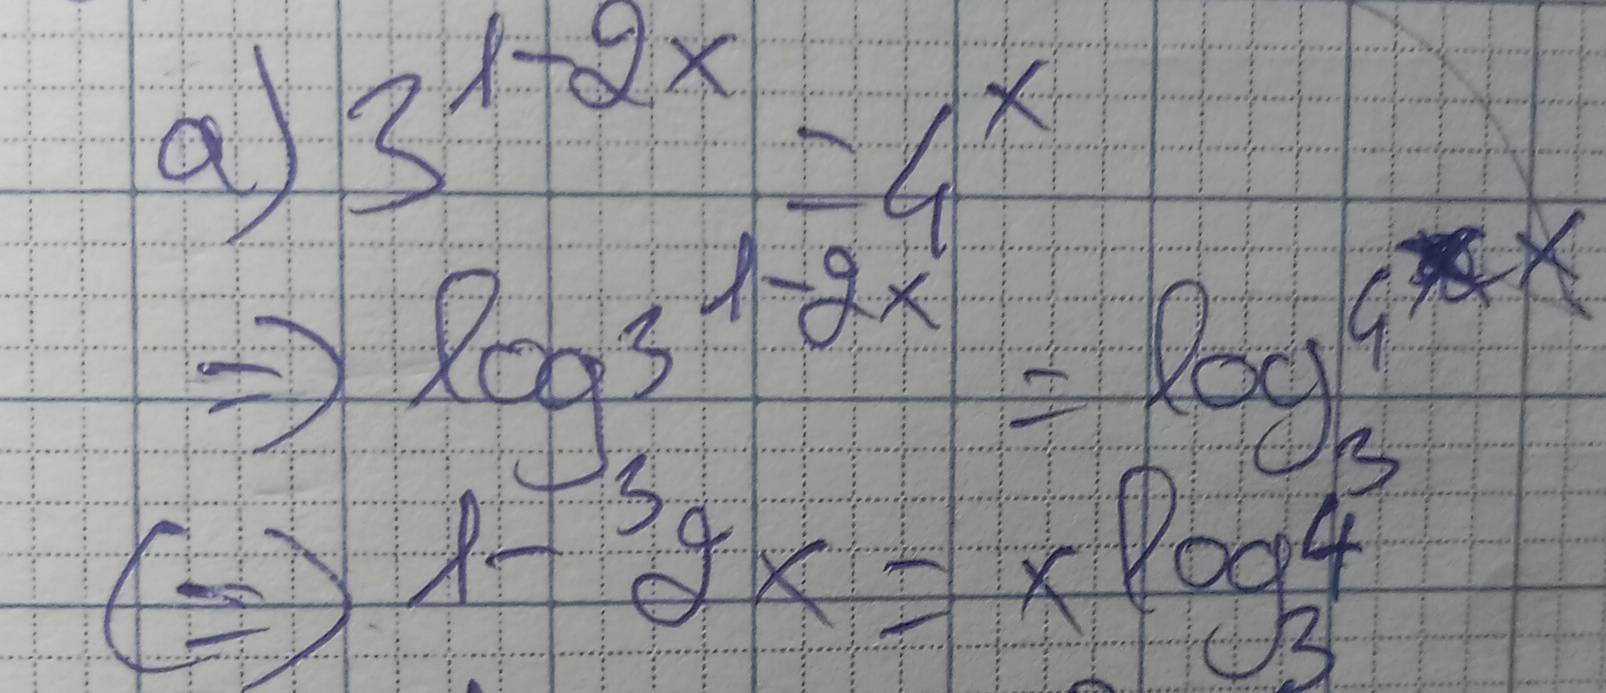 a) 3^{1-2x} = 4^x
=> log_3 3^{1-2x} = log_3 4^x
<=> 1-2x = x log_3 4